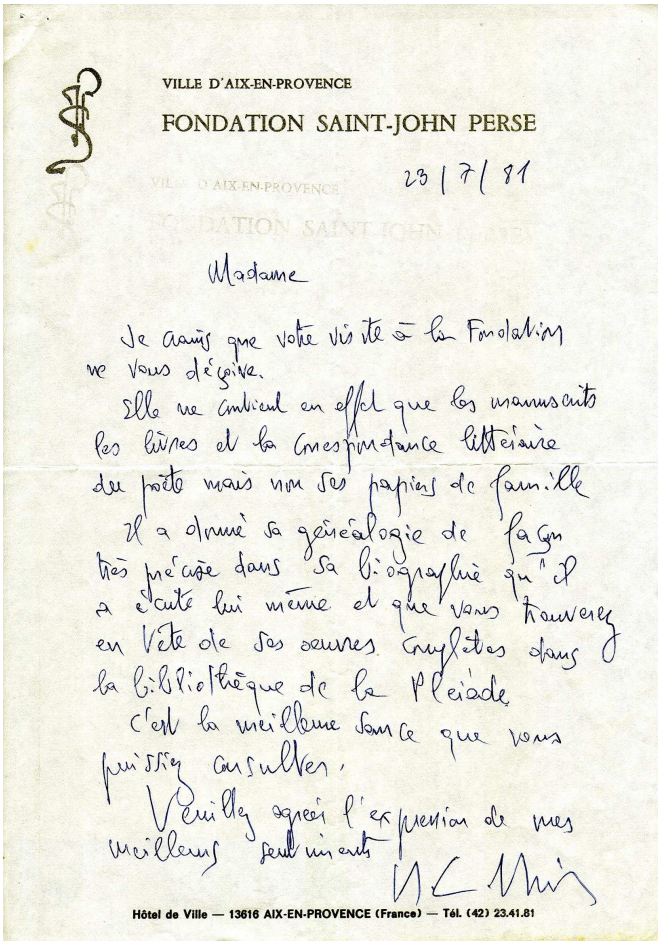 VILLE D'AIX-EN-PROVENCE
FONDATION SAINT-JOHN PERSE
23/7/81
Madame
Je crains que votre visite à la Fondation
ne vous déçoive.
Elle ne contient en effet que les manuscrits
les livres et la correspondance littéraire
du poète mais non ses papiers de famille
Il a donné sa généalogie de façon
très précise dans sa biographie qu'il
a écrite lui même et que vous trouverez
en tête de ses oeuvres complètes dans
la bibliothèque de la Pleiade
C'est la meilleure source que vous
puissiez consulter.
Veuillez agréer l'expression de mes
meilleurs sentiments
Hôtel de Ville — 13616 AIX-EN-PROVENCE (France) — Tél. (42) 23.41.81